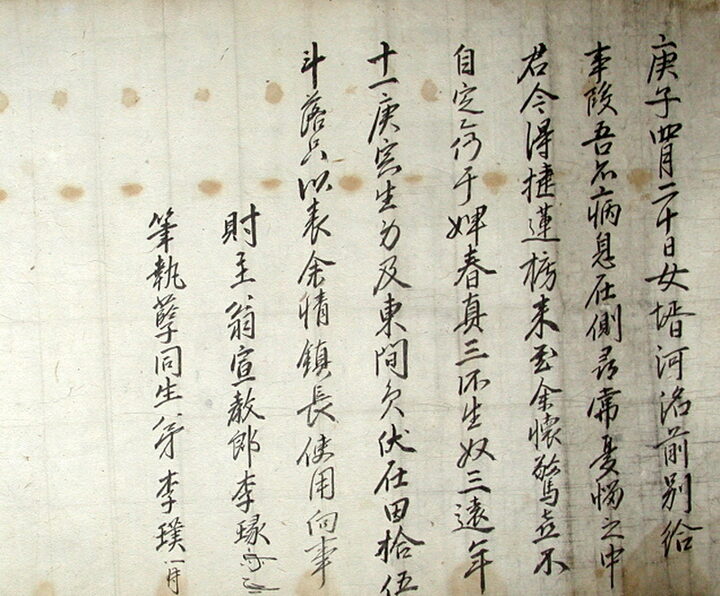 庚子四月二十日女壻河洺前別給
事段吾病息在側尋常憂惱之中
君今得捷蓮榜來至余懷驚喜不
自定乙仍于婢春真三所生奴三遠年
十一庚寅生及東間員伏在田拾伍
斗落只以表余情鎮長使用向事
財主翁宣敎郎李琢
筆執孽同生弟李璞